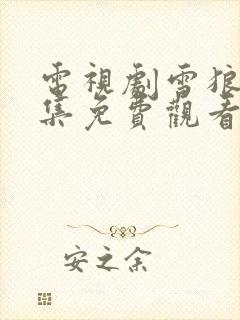 電視劇雪狼
集免費觀看
安之余